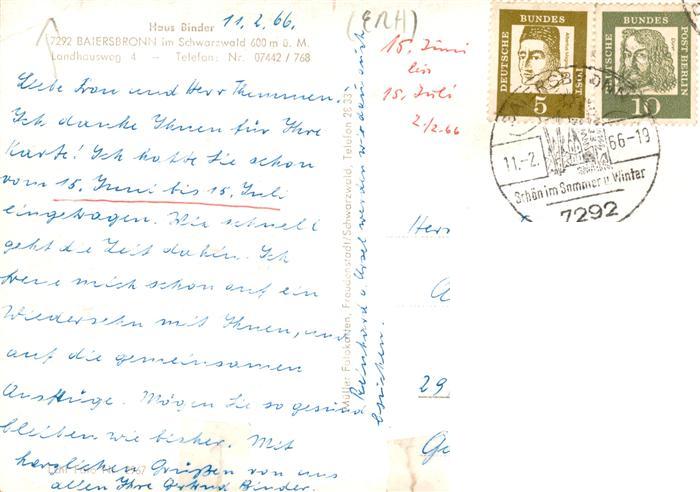 11.2.66.
(ERH)
Haus Binder
7292 BAIERSBRONN im Schwarzwald 600 m ü. M.
Landhausweg 4 – Telefon: Nr. 07442 / 768
Liebe Frau und Herr
Ich danke Ihnen für Ihre
Karte! Ich hatte Sie schon
vom 15. Juni bis 15. Juli
eingetragen. Wie schnell
geht die Zeit dahin. Ich
freue mich schon auf ein
Wiedersehn mit Ihnen, und
auf die gemeinsamen
Ausflüge. Mögen Sie so gesund
bleiben wie bisher. Mit
herzlichen Grüßen von uns
allen Ihre Gertrud Binder.
Reinhard u. Ursel werden uns dann auch
besuchen.
Müller Fotokarten, Freudenstadt/Schwarzwald, Telefon 28 33
15. Juni
bis
15. Juli
2/2.66
Herr
A
29
Ge
DEUTSCHE BUNDESPOST
5
DEUTSCHE BUNDESPOST BERLIN
10
11.-2.
66-19
Schön im Sommer u Winter
7292